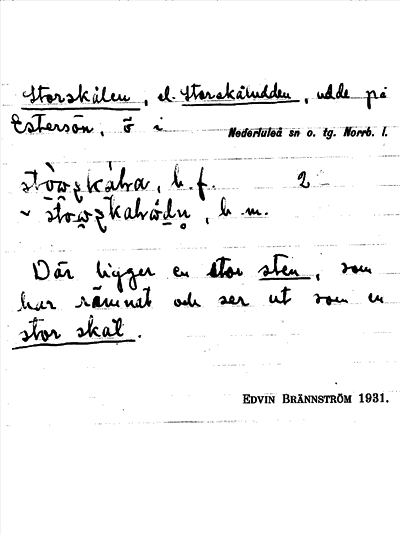 Storskålen, el. Storskåludden, udde på
Estersön, ö i Nederluleå sn o. tg. Norrb. l.
b. f. 2
~ b m.
Där ligger en stor sten, som
har rämnat och ser ut som en
stor skål.
EDVIN BRÄNNSTRÖM 1931.